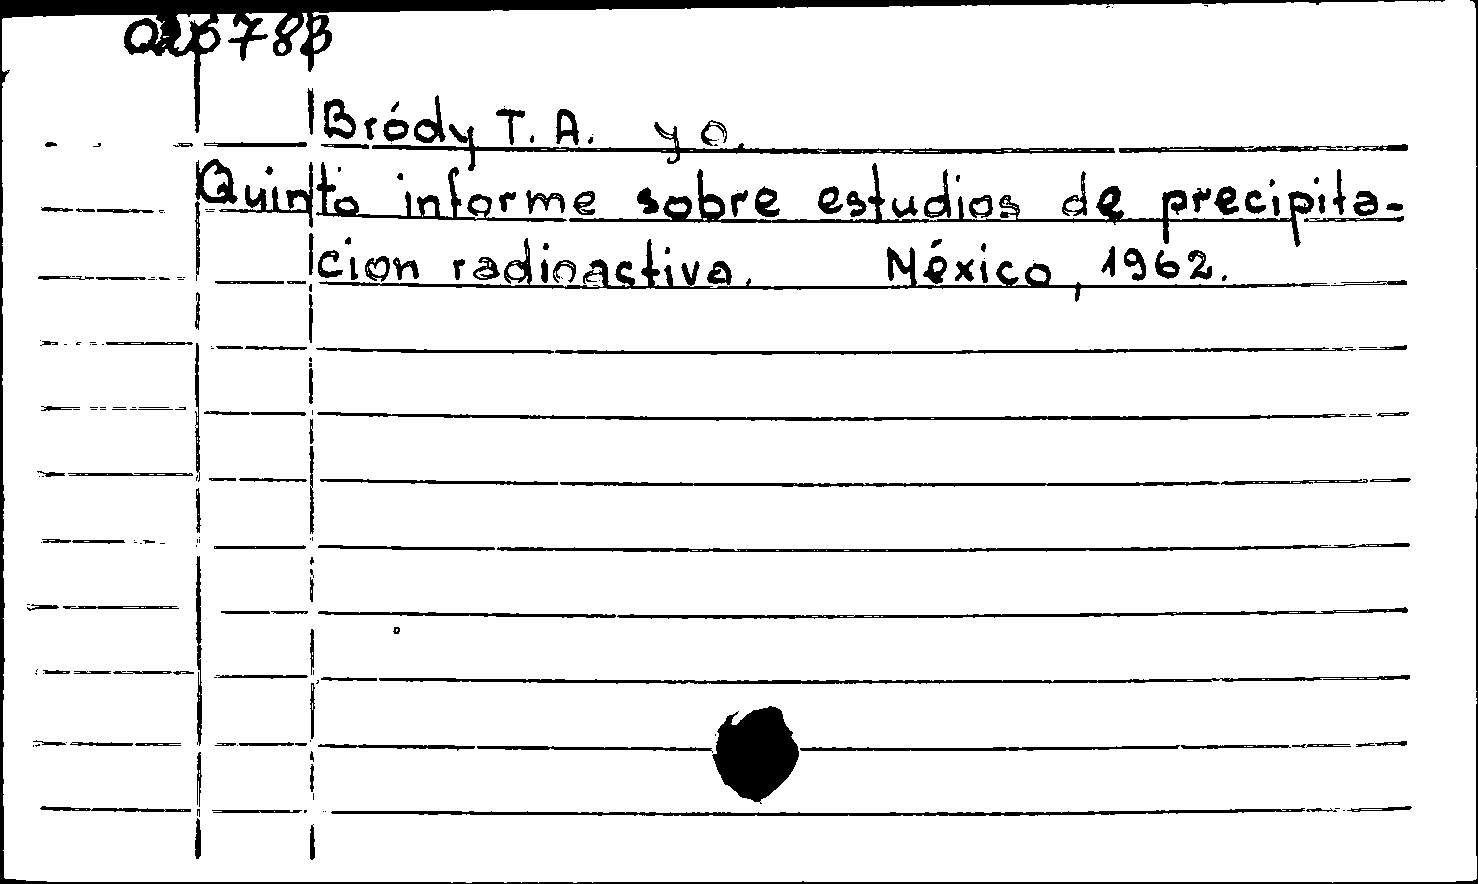 Bródy T. A. y o.
Quinto informe sobre estudios de precipita-
cion radioactiva. México, 1962.